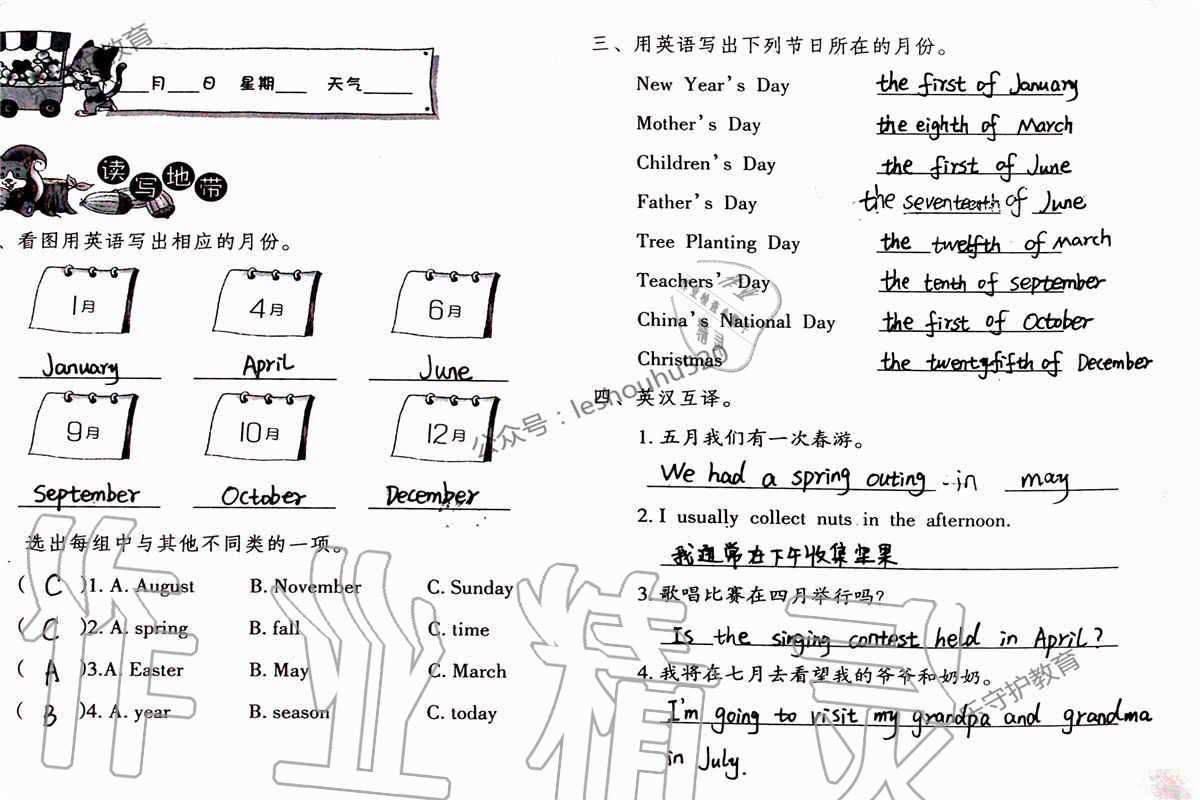 ___月___日 星期___ 天气_____
读写地带
、看图用英语写出相应的月份。
1月 4月 6月
January April June
9月 10月 12月
September October December
选出每组中与其他不同类的一项。
( C )1. A. August B. November C. Sunday
( C )2. A. spring B. fall C. time
( A )3. A. Easter B. May C. March
( B )4. A. year B. season C. today
三、用英语写出下列节日所在的月份。
New Year's Day the first of January
Mother's Day the eighth of March
Children's Day the first of June
Father's Day the seventeeth of June
Tree Planting Day the twelfth of March
Teachers' Day the tenth of september
China's National Day the first of October
Christmas the twentyfifth of December
四、英汉互译。
1. 五月我们有一次春游。
We had a spring outing in may
2. I usually collect nuts in the afternoon.
我通常在下午收集坚果
3. 歌唱比赛在四月举行吗?
Is the singing contest held in April?
4. 我将在七月去看望我的爷爷和奶奶。
I'm going to visit my grandpa and grandma
in July.
作业精灵
公众号:leshouhu520
乐守护教育
教育